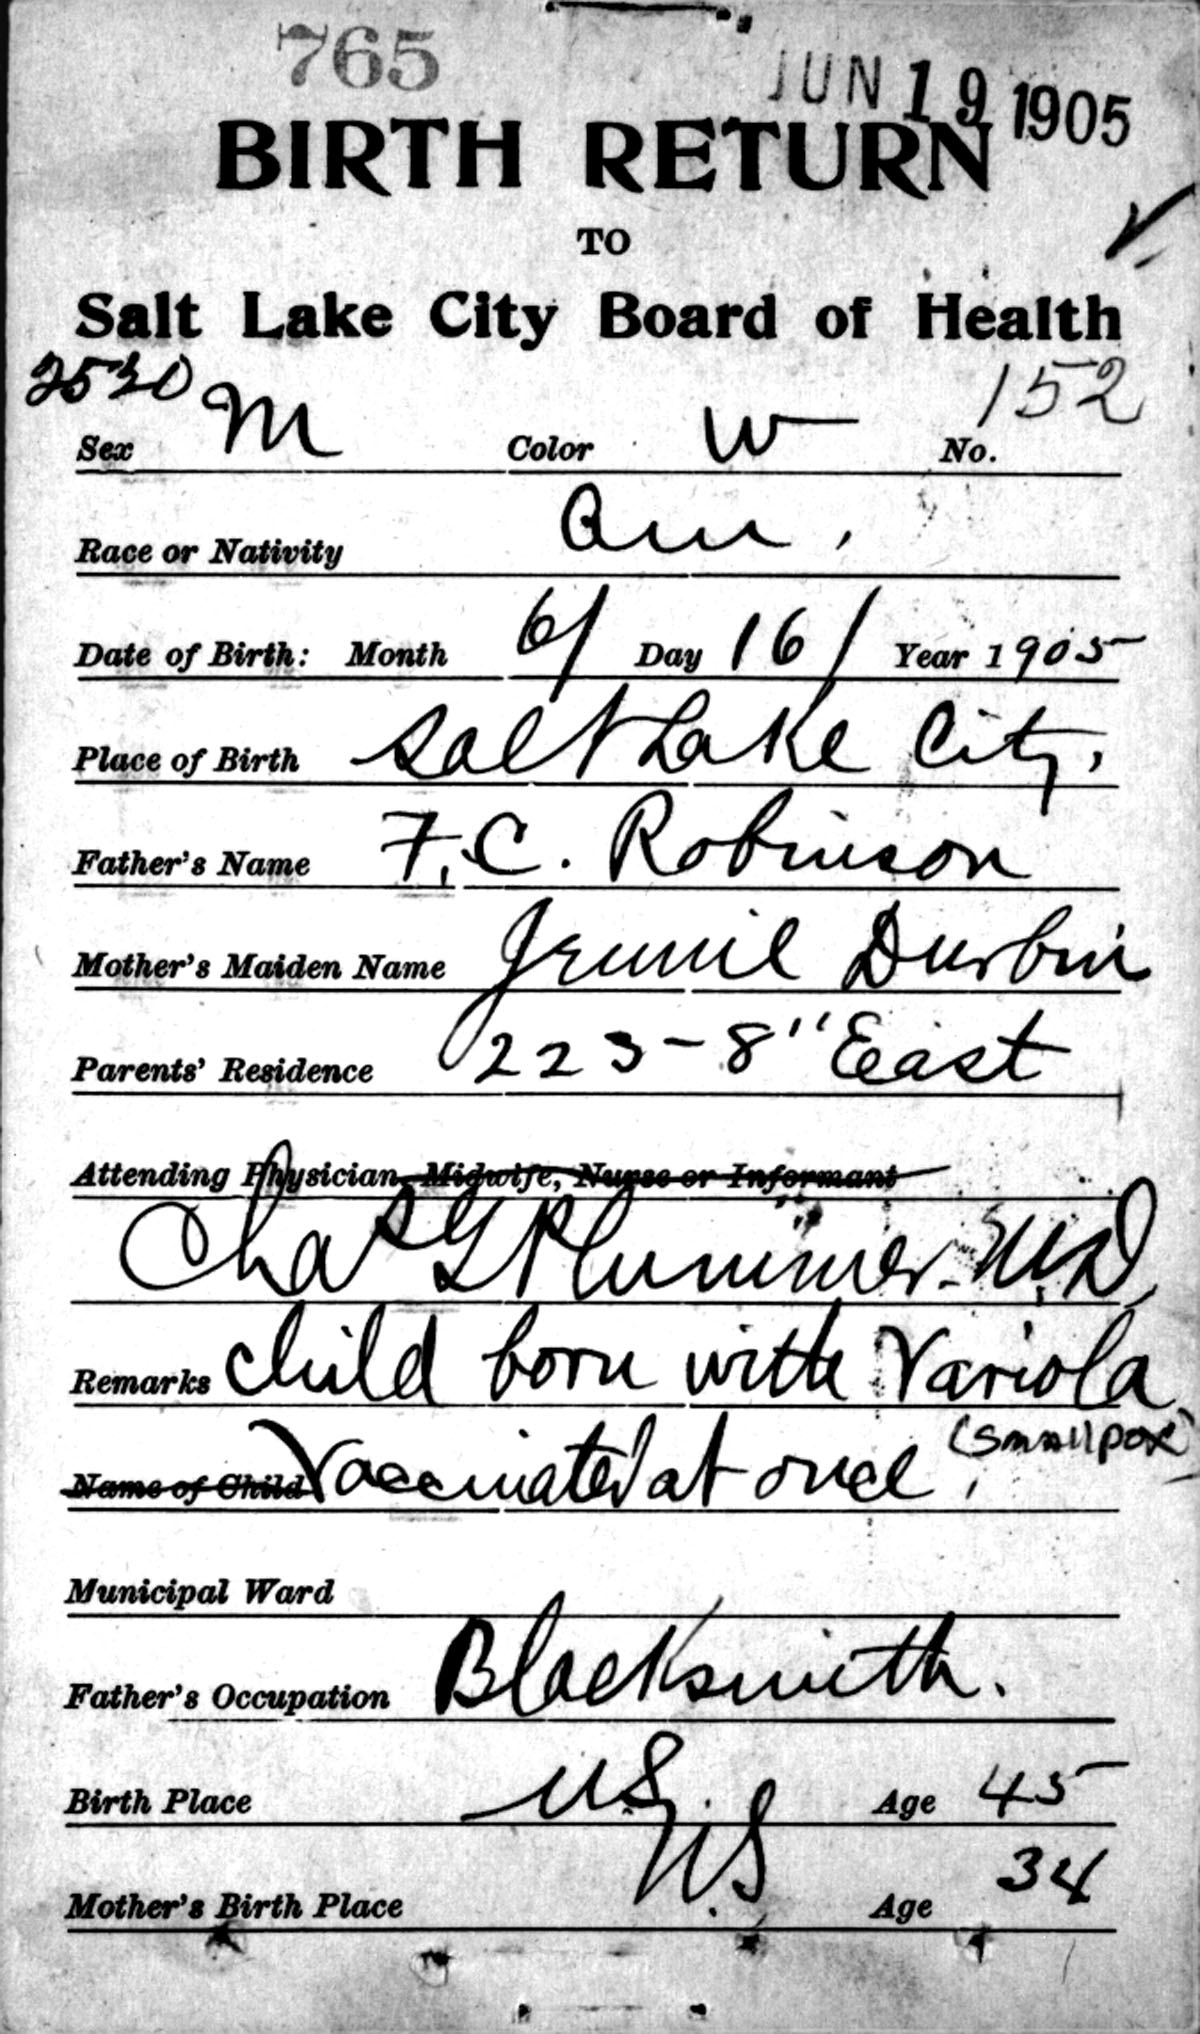 765
JUN 19 1905
BIRTH RETURN
TO
Salt Lake City Board of Health
2530
Sex M Color W No. 152
Race or Nativity Am.
Date of Birth: Month 6/ Day 16/ Year 1905
Place of Birth Salt Lake City.
Father's Name F. C. Robinson
Mother's Maiden Name Jennie Durbin
Parents' Residence 223-8" East
Attending Physician, Midwife, Nurse or Informant
Chas G Plummer M.D.
Remarks Child born with Variola
(smallpox)
Name of Child Vaccinated at once.
Municipal Ward
Father's Occupation Blacksmith.
Birth Place U.S. Age 45
Mother's Birth Place U.S Age 34